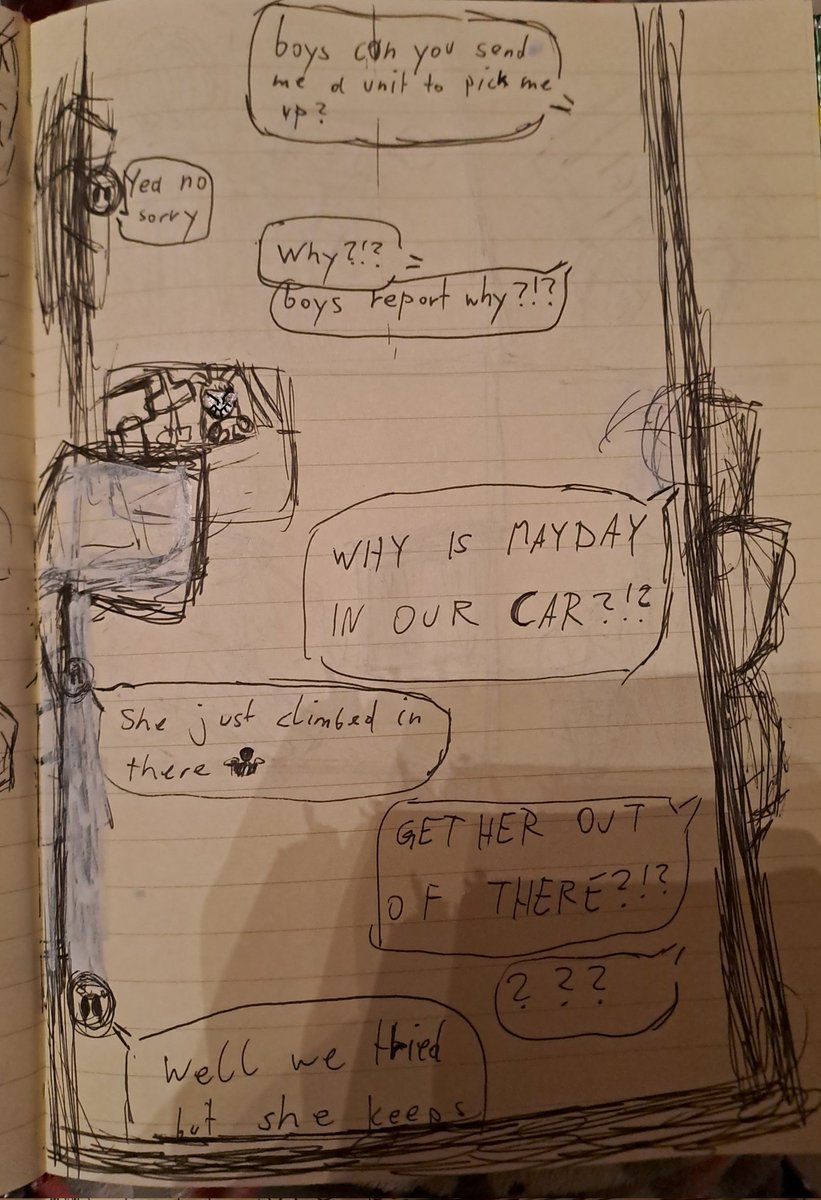 boys can you send
me a unit to pick me
up?
Yea no
sorry
Why?!?
boys report why?!?
WHY IS MAYDAY
IN OUR CAR?!?
She just climbed in
there
GET HER OUT
OF THERE?!?
???
Well we tried
but she keeps